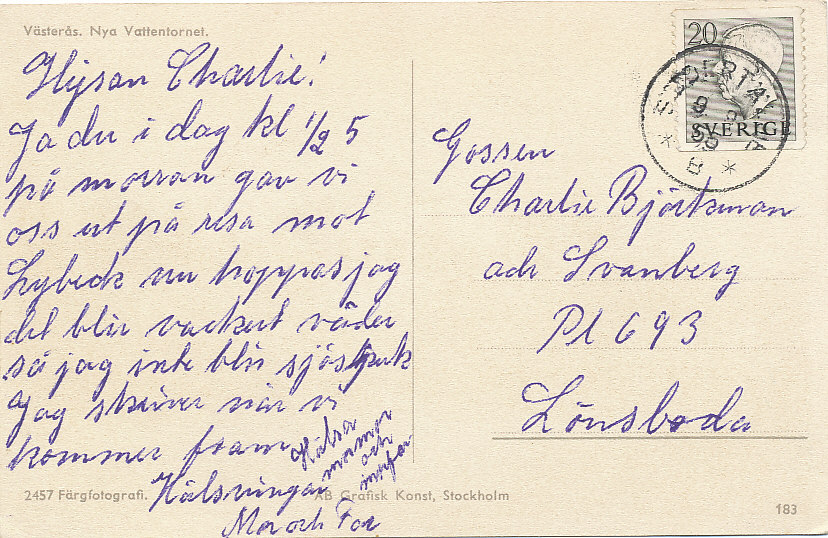 Västerås. Nya Vattentornet.
Hejsan Charlie!
Ja du i dag kl 1/2 5
på morran gav vi
oss ut på resa mot
Lybeck nu hoppas jag
det blir vackert väder
så jag inte blir sjösjuk
Jag skriver när vi
kommer fram
Hälsningar
Mor och Far
Hälsa
mormor
och
morfar
2457 Färgfotografi.
AB Grafisk Konst, Stockholm
183
20
SVERIGE
SÖDERTÄLJE
Gossen
Charlie Björkman
adr Svanberg
Pl 693
Lönsboda